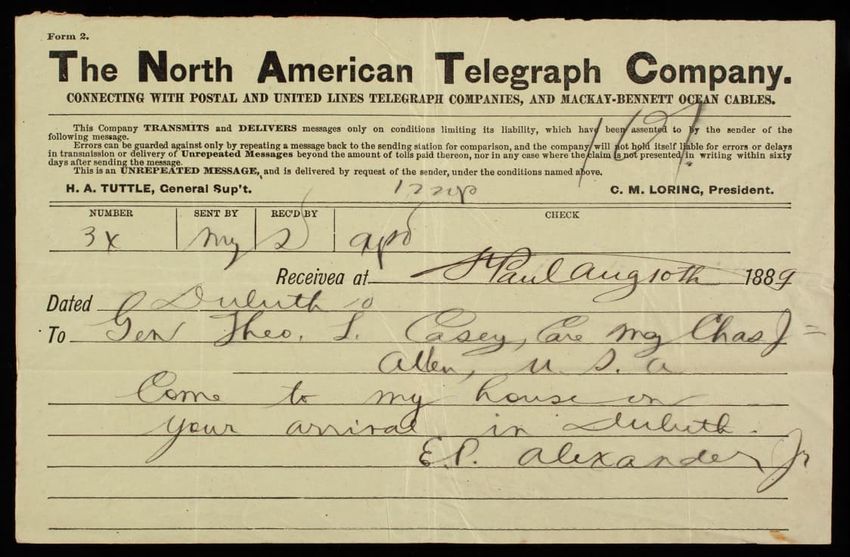 Form 2.
The North American Telegraph Company.
CONNECTING WITH POSTAL AND UNITED LINES TELEGRAPH COMPANIES, AND MACKAY-BENNETT OCEAN CABLES.
This Company TRANSMITS and DELIVERS messages only on conditions limiting its liability, which have been assented to by the sender of the
following message.
Errors can be guarded against only by repeating a message back to the sending station for comparison, and the company will not hold itself liable for errors or delays
in transmission or delivery of Unrepeated Messages beyond the amount of tolls paid thereon, nor in any case where the claim is not presented in writing within sixty
days after sending the message.
This is an UNREPEATED MESSAGE, and is delivered by request of the sender, under the conditions named above.
H. A. TUTTLE, General Sup't. C. M. LORING, President.
NUMBER SENT BY REC'D BY CHECK
3x my
Received at St Paul Aug 10th 1889
Dated Duluth 10
To Gen Theo. L. Casey, Care Maj Chas J =
Allen, U. S. A
Come to my house on
your arrival in Duluth.
E. P. Alexander Jr